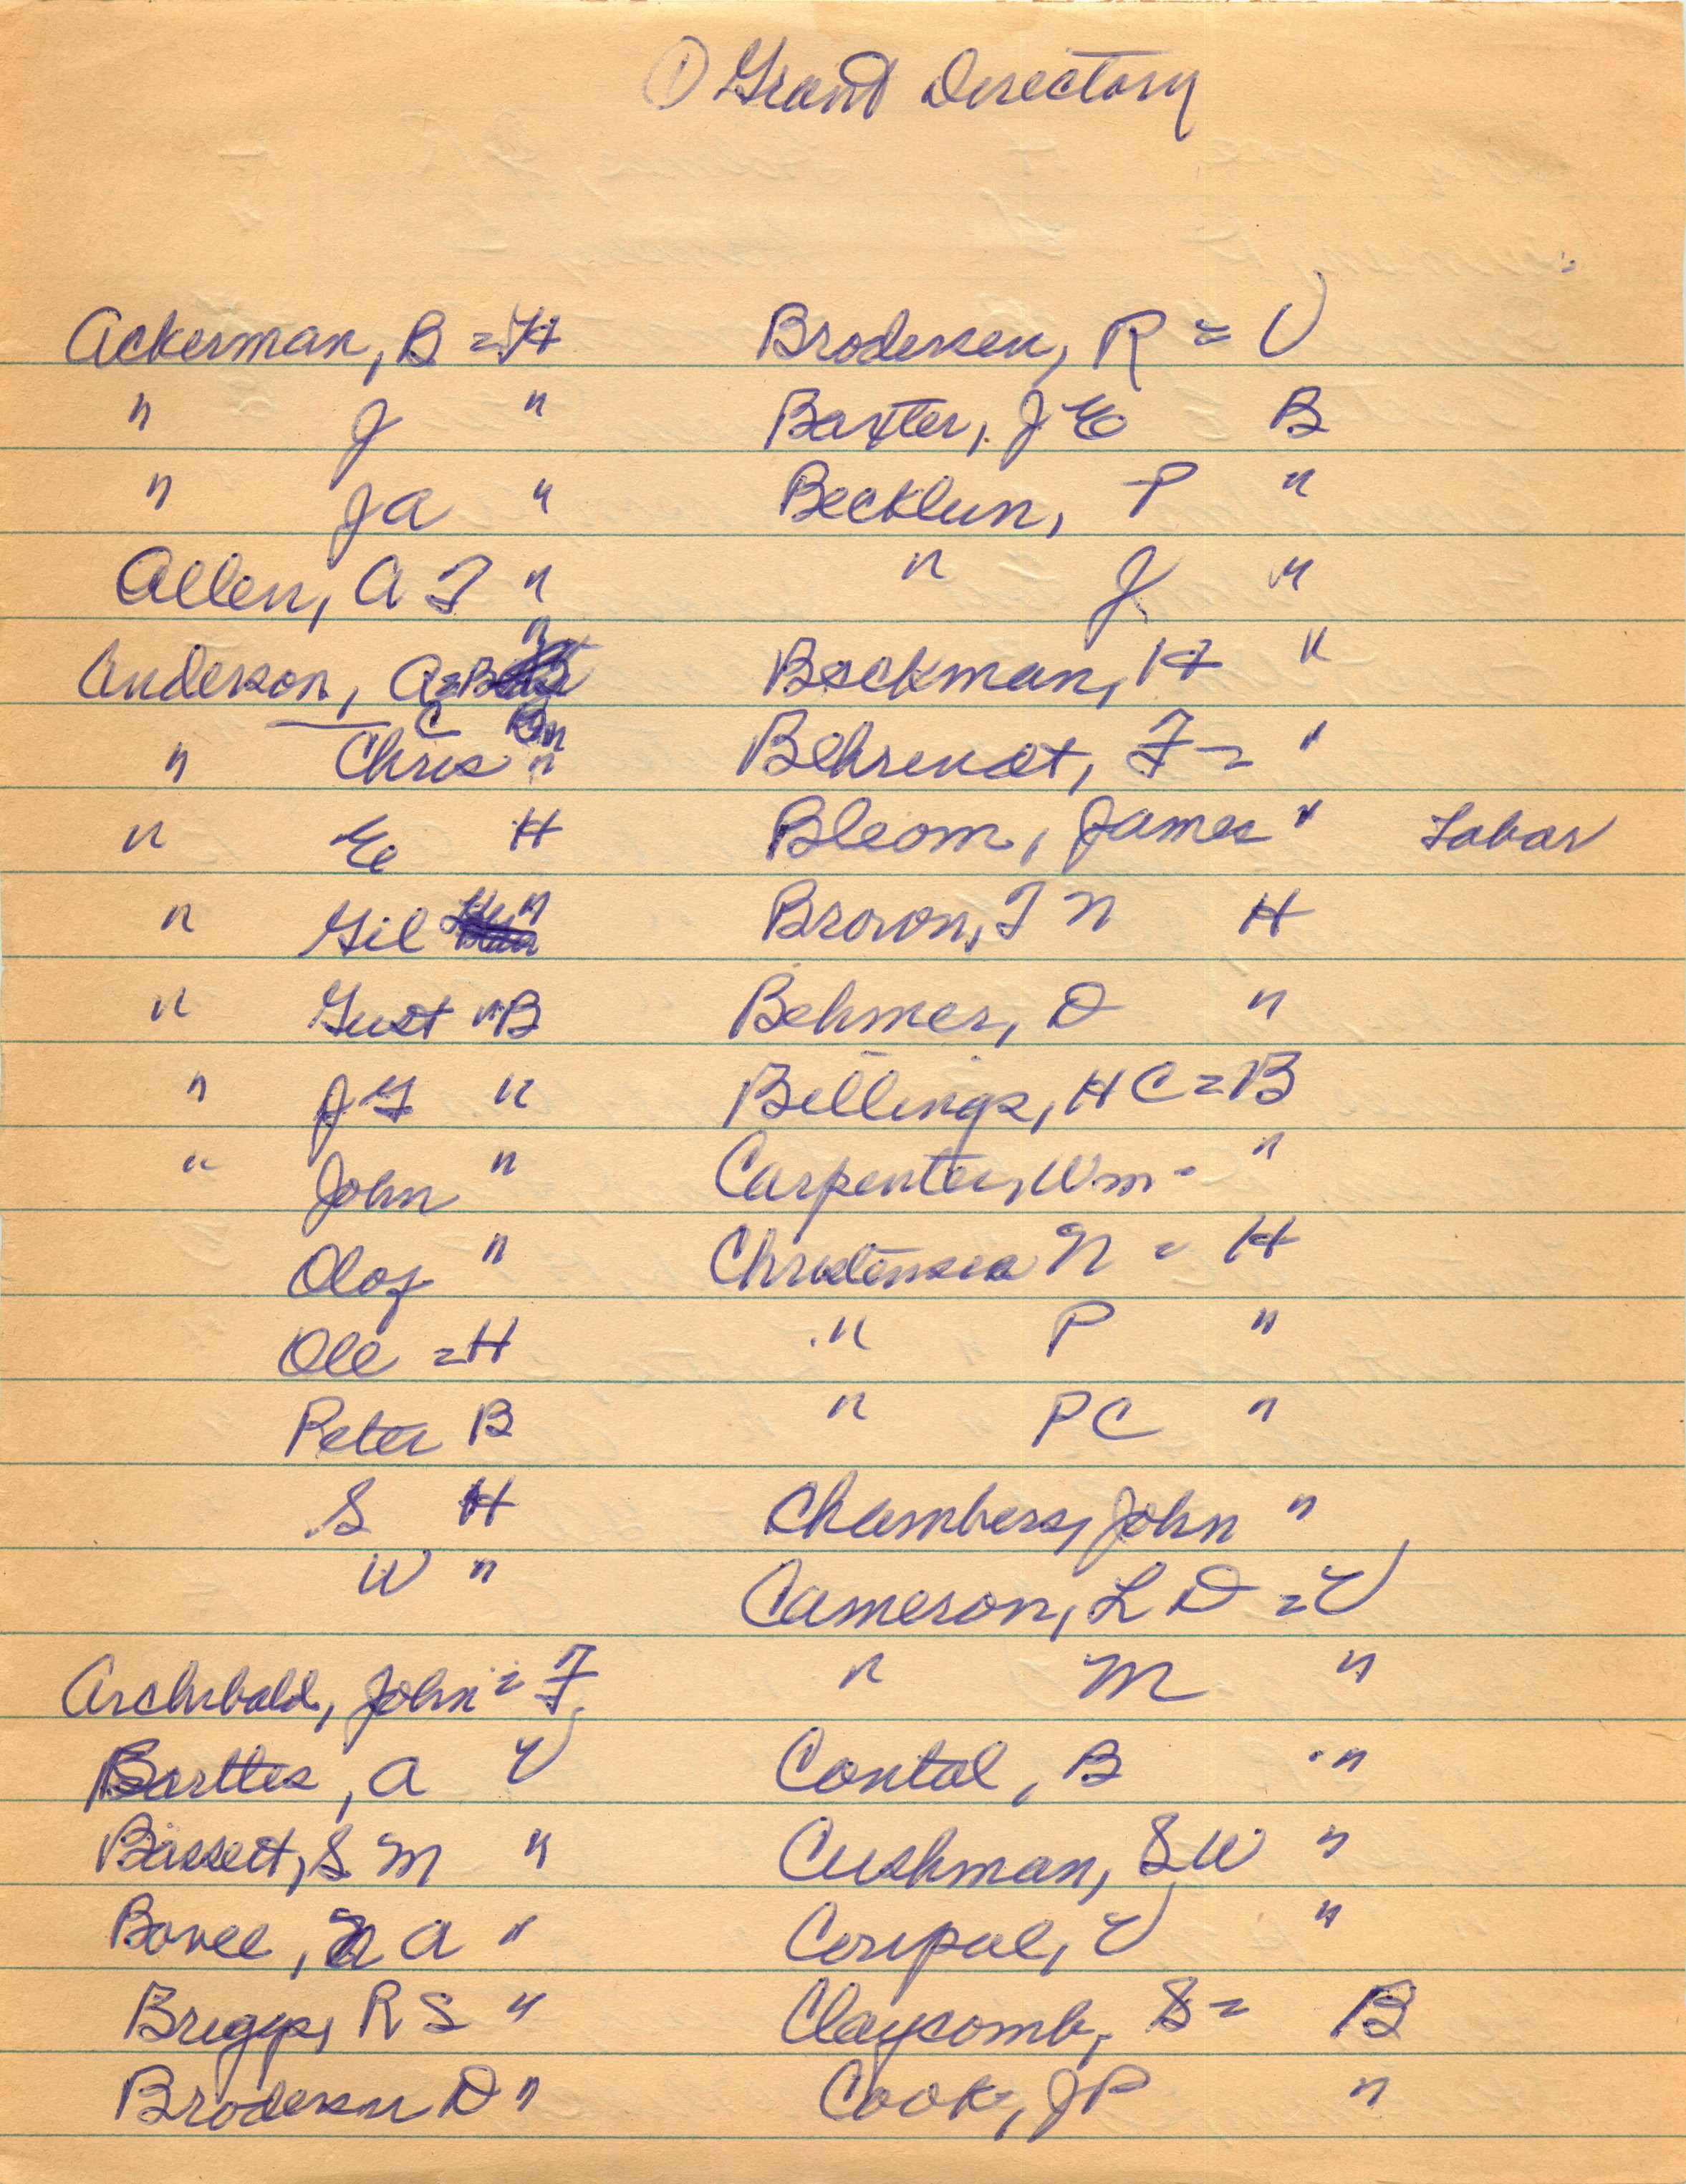 ① Grant Directory
Ackerman, B = H
" J "
" J A "
Allen, A T "
Anderson, A = B
C "
" Chris "
" E H
" Gil "
" Gust " B
" J G "
" John "
Olof "
Ole = H
Peter B
S H
W "
Archibald, John = F
Barttes, A V
Bassett, S M "
Bovee, A "
Briggs, R S "
Brodersen D "
Brodersen, R = V
Baxter, J E B
Becklun, P "
" J "
Beckman, H "
Behrendt, F = "
Bleom, James "
Brown, T N H
Behmer, D "
Billings, H C = B
Carpenter, Wm - "
Christensen N = H
" P "
" P C "
Chambers, John "
Cameron, L D = V
" M "
Contal, B "
Cushman, S W "
Coripal, V "
Claycomb, S = B
Cook, J P "